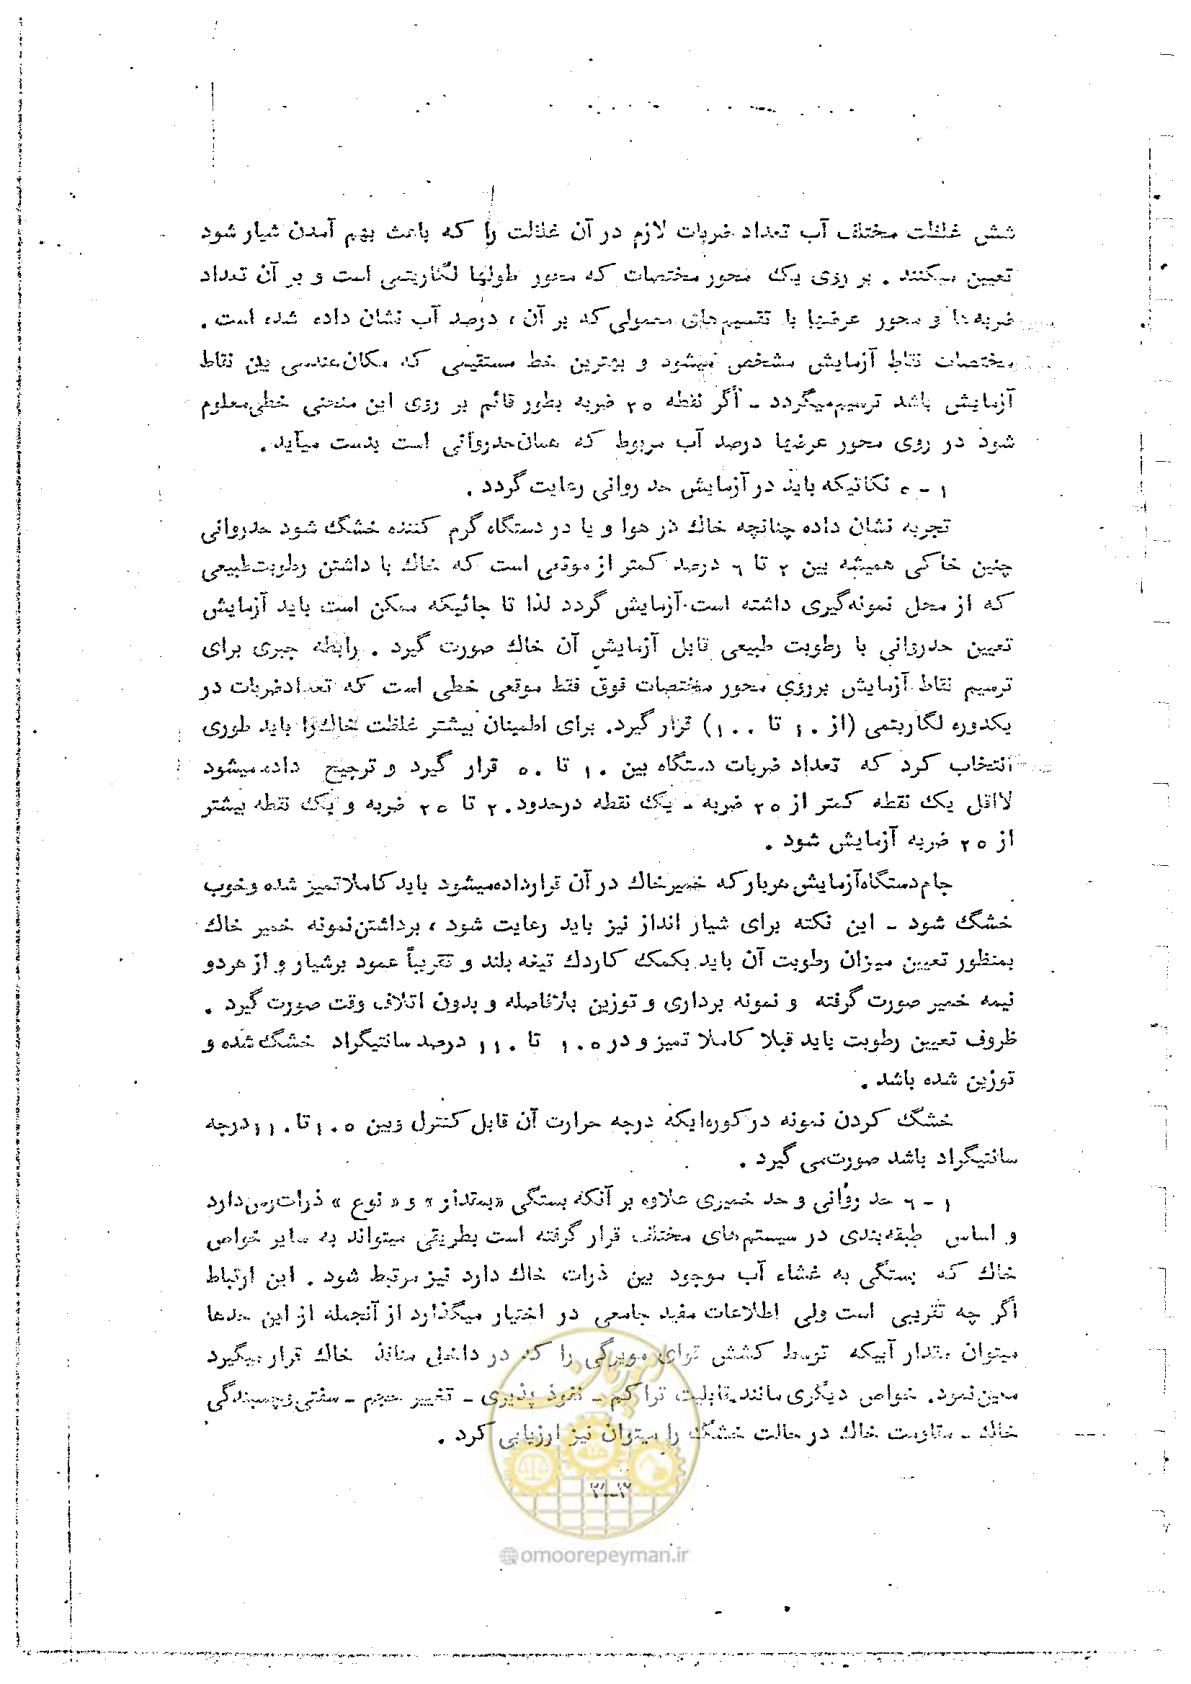 شش غلظت مختلف آب تعداد ضربات لازم در آن غلظت را که باعث بهم آمدن شیار شود
تعیین میکنند . بر روی یک محور مختصات که محور طولها لگاریتمی است و بر آن تعداد
ضربه‌ها و محور عرضها با تقسیم‌های معمولی که بر آن ، درصد آب نشان داده شده است .
مختصات نقاط آزمایش مشخص میشود و بهترین خط مستقیمی که مکان هندسی این نقاط
آزمایش باشد ترسیم میگردد ـ اگر نقطه ۲۵ ضربه بطور قائم بر روی این منحنی خطی معلوم
شود در روی محور عرضها درصد آب مربوط که همان حدروانی است بدست میآید .
۱ ـ ۵ نکاتیکه باید در آزمایش حد روانی رعایت گردد .
تجربه نشان داده چنانچه خاک در هوا و یا در دستگاه گرم کننده خشگ شود حدروانی
چنین خاکی همیشه بین ۲ تا ۶ درصد کمتر از موقعی است که خاک با داشتن رطوبت طبیعی
که از محل نمونه‌گیری داشته است آزمایش گردد لذا تا جائیکه ممکن است باید آزمایش
تعیین حدروانی با رطوبت طبیعی قابل آزمایش آن خاک صورت گیرد . رابطه جبری برای
ترسیم نقاط آزمایش برروی محور مختصات فوق فقط موقعی خطی است که تعداد ضربات در
یکدوره لگاریتمی (از ۱۰ تا ۱۰۰) قرار گیرد. برای اطمینان بیشتر غلظت خاک را باید طوری
انتخاب کرد که تعداد ضربات دستگاه بین ۱۰ تا ۵۰ قرار گیرد و ترجیح داده میشود
لااقل یک نقطه کمتر از ۲۵ ضربه ـ یک نقطه درحدود ۲۰ تا ۲۵ ضربه و یک نقطه بیشتر
از ۲۵ ضربه آزمایش شود .
جام دستگاه آزمایش هربار که خمیر خاک در آن قرار داده میشود باید کاملا تمیز شده وخوب
خشگ شود ـ این نکته برای شیار انداز نیز باید رعایت شود ، برداشتن نمونه خمیر خاک
بمنظور تعیین میزان رطوبت آن باید بکمک کاردک تیغه بلند و تقریباً عمود برشیار و از هردو
نیمه خمیر صورت گرفته و نمونه برداری و توزین بلافاصله و بدون اتلاف وقت صورت گیرد .
ظروف تعیین رطوبت باید قبلا کاملا تمیز و در ۱۰۵ تا ۱۱۰ درصد سانتیگراد خشگ شده و
توزین شده باشد .
خشگ کردن نمونه در کوره‌ایکه درجه حرارت آن قابل کنترل وبین ۱۰۵ تا ۱۱۰ درجه
سانتیگراد باشد صورت می گیرد .
۱ ـ ۶ حد روانی و حد خمیری علاوه بر آنکه بستگی «بمقدار» و « نوع » ذرات رس دارد
و اساس طبقه‌بندی در سیستم‌های مختلف قرار گرفته است بطریقی میتواند به سایر خواص
خاک که بستگی به غشاء آب موجود بین ذرات خاک دارد نیز مرتبط شود . این ارتباط
اگر چه تقریبی است ولی اطلاعات مفید جامعی در اختیار میگذارد از آنجمله از این حدها
میتوان مقدار آبیکه توسط کشش قوای مویرگی را که در داخل منافذ خاک قرار میگیرد
معین نمود. خواص دیگری مانند قابلیت تراکم ـ نفوذ پذیری ـ تغییر حجم ـ سفتی وچسبندگی
خاک ـ مقاومت خاک در حالت خشگ را میتوان نیز ارزیابی کرد .
امور پیمان
@omoorepeyman.ir